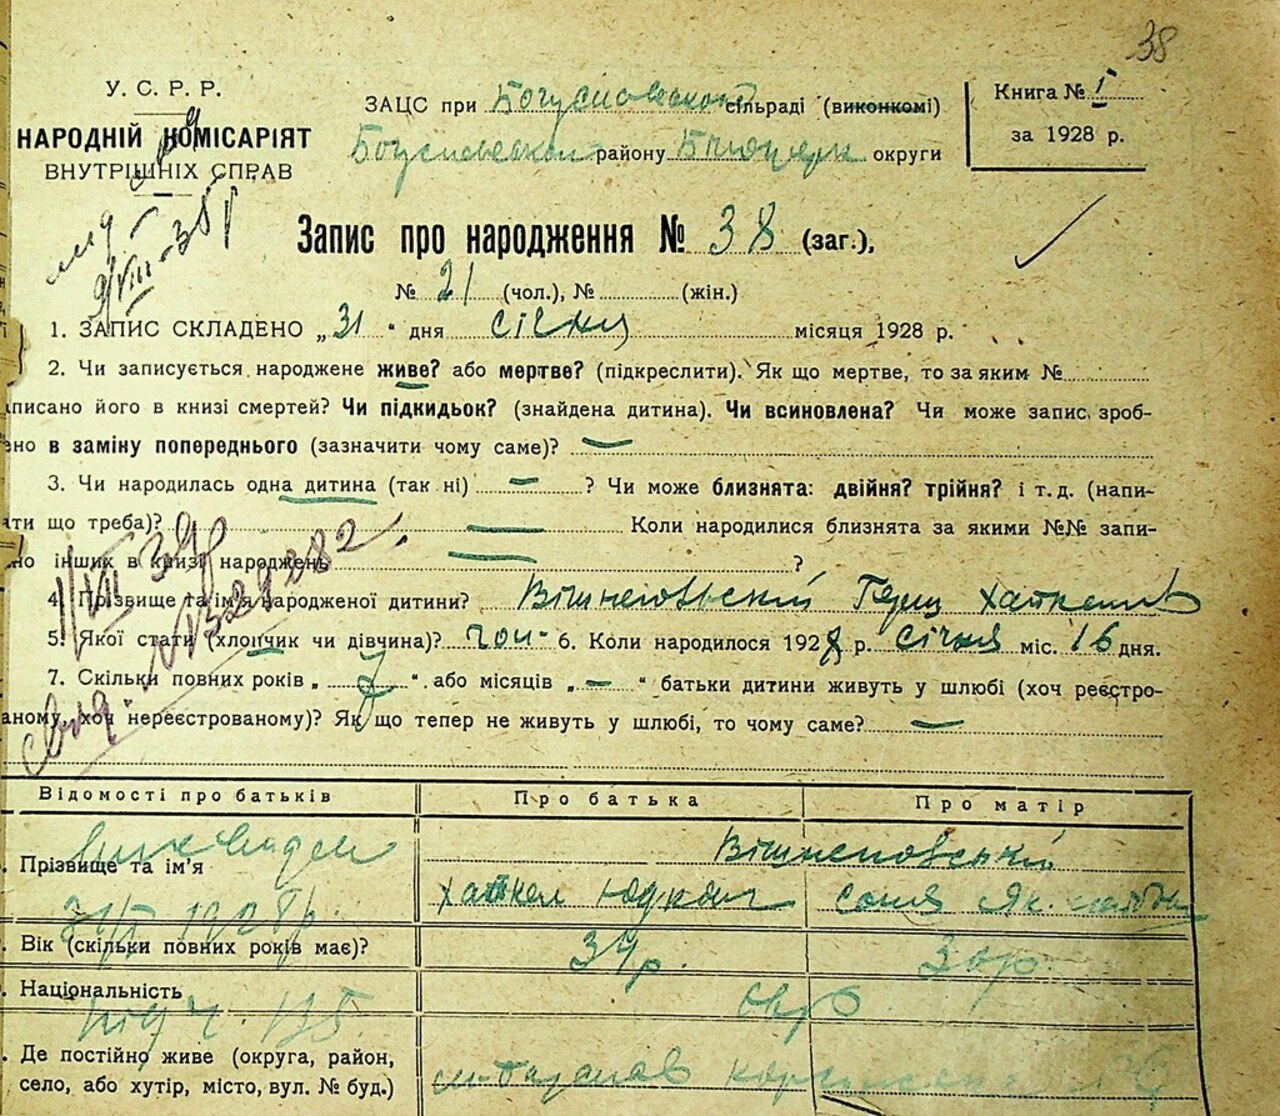 38
У. С. Р. Р.
НАРОДНІЙ КОМІСАРІЯТ
ВНУТРІШНІХ СПРАВ
ЗАЦС при Богуславській сільраді (виконкомі)
району округи
Книга № I
за 1928 р.
9/VIII-38р
Запис про народження № 38 (заг.),
№ 21 (чол.), № (жін.)
1. ЗАПИС СКЛАДЕНО „31 “ дня січня місяця 1928 р.
2. Чи записується народжене живе? або мертве? (підкреслити). Як що мертве, то за яким №
писано його в книзі смертей? Чи підкидьок? (знайдена дитина). Чи всиновлена? Чи може запис зроб-
ено в заміну попереднього (зазначити чому саме)? —
3. Чи народилась одна дитина (так ні) — ? Чи може близнята: двійня? трійня? і т. д. (напи-
ти що треба)? — Коли народилися близнята за якими №№ запи-
но інших в книзі народжень — ?
4. Прізвище та ім'я народженої дитини? Вішнеповський Герш
5. Якої стати (хлопчик чи дівчина)? чол- 6. Коли народилося 1928 р. січня міс. 16 дня.
7. Скільки повних років „ 7 “ або місяців „ — “ батьки дитини живуть у шлюбі (хоч реєстро-
аному, хоч нереєстрованому)? Як що тепер не живуть у шлюбі, то чому саме? —
Відомості про батьків Про батька Про матір
Прізвище та ім'я Вішнеповський
Хайкел Юдкович Соня Як.
31/I 1928 р.
Вік (скільки повних років має)? 39р. 30р.
Національність євр
Де постійно живе (округа, район,
село, або хутір, місто, вул. № буд.) м-Богуслав